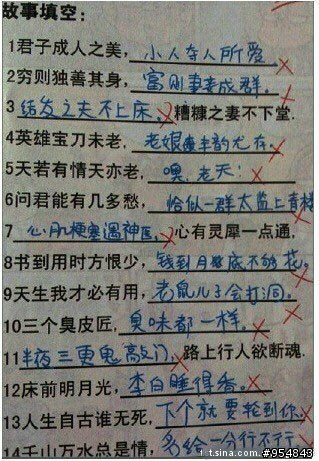 故事填空:
1君子成人之美,小人夺人所爱。
2穷则独善其身,富则妻妾成群。
3结发之夫不上床,糟糠之妻不下堂.
4英雄宝刀未老,老娘丰韵尤存。
5天若有情天亦老,噢,老天!
6问君能有几多愁,恰似一群太监上青楼
7心肌梗塞遇神医,心有灵犀一点通。
8书到用时方恨少,钱到月底不够花。
9天生我才必有用,老鼠儿子会打洞。
10三个臭皮匠,臭味都一样。
11半夜三更鬼敲门,路上行人欲断魂.
12床前明月光,李白睡得香。
13人生自古谁无死,下个就要轮到你。
14千山万水总是情,多给一分行不行。
t.sina.com #954843